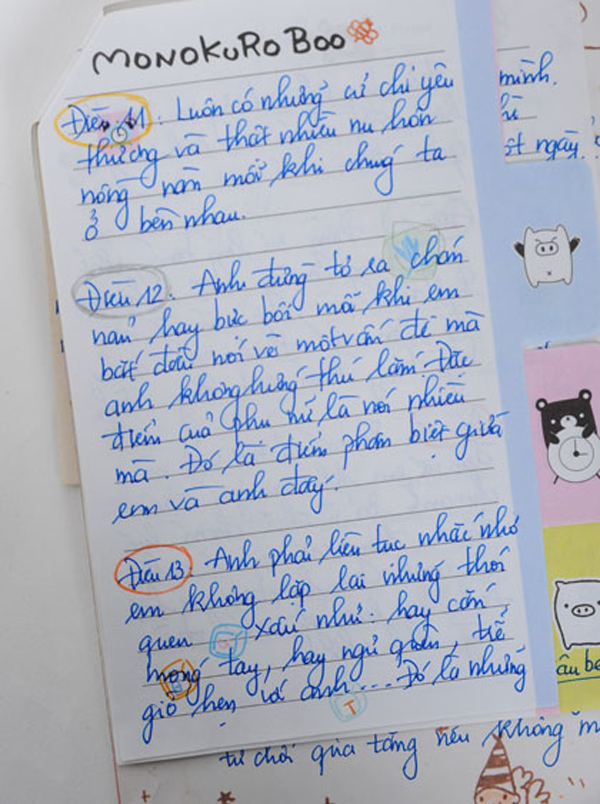 MONOKURO BOO
Điều 11: Luôn có những cử chỉ yêu
thương và thật nhiều nụ hôn
nồng nàn mỗi khi chúng ta
ở bên nhau.
Điều 12: Anh đừng tỏ ra chán
nản hay bực bội mỗi khi em
bắt đầu nói về một vấn đề mà
anh không hứng thú lắm. Đặc
điểm của phụ nữ là nói nhiều
mà. Đó là điểm phân biệt giữa
em và anh đấy.
Điều 13. Anh phải liên tục nhắc nhở
em không lặp lại những thói
quen xấu như: hay cắn
móng tay, hay ngủ quên, trễ
giờ hẹn với anh.... Đó là những
mình.
ột ngày.
âu bé
từ chối quà tặng nếu không